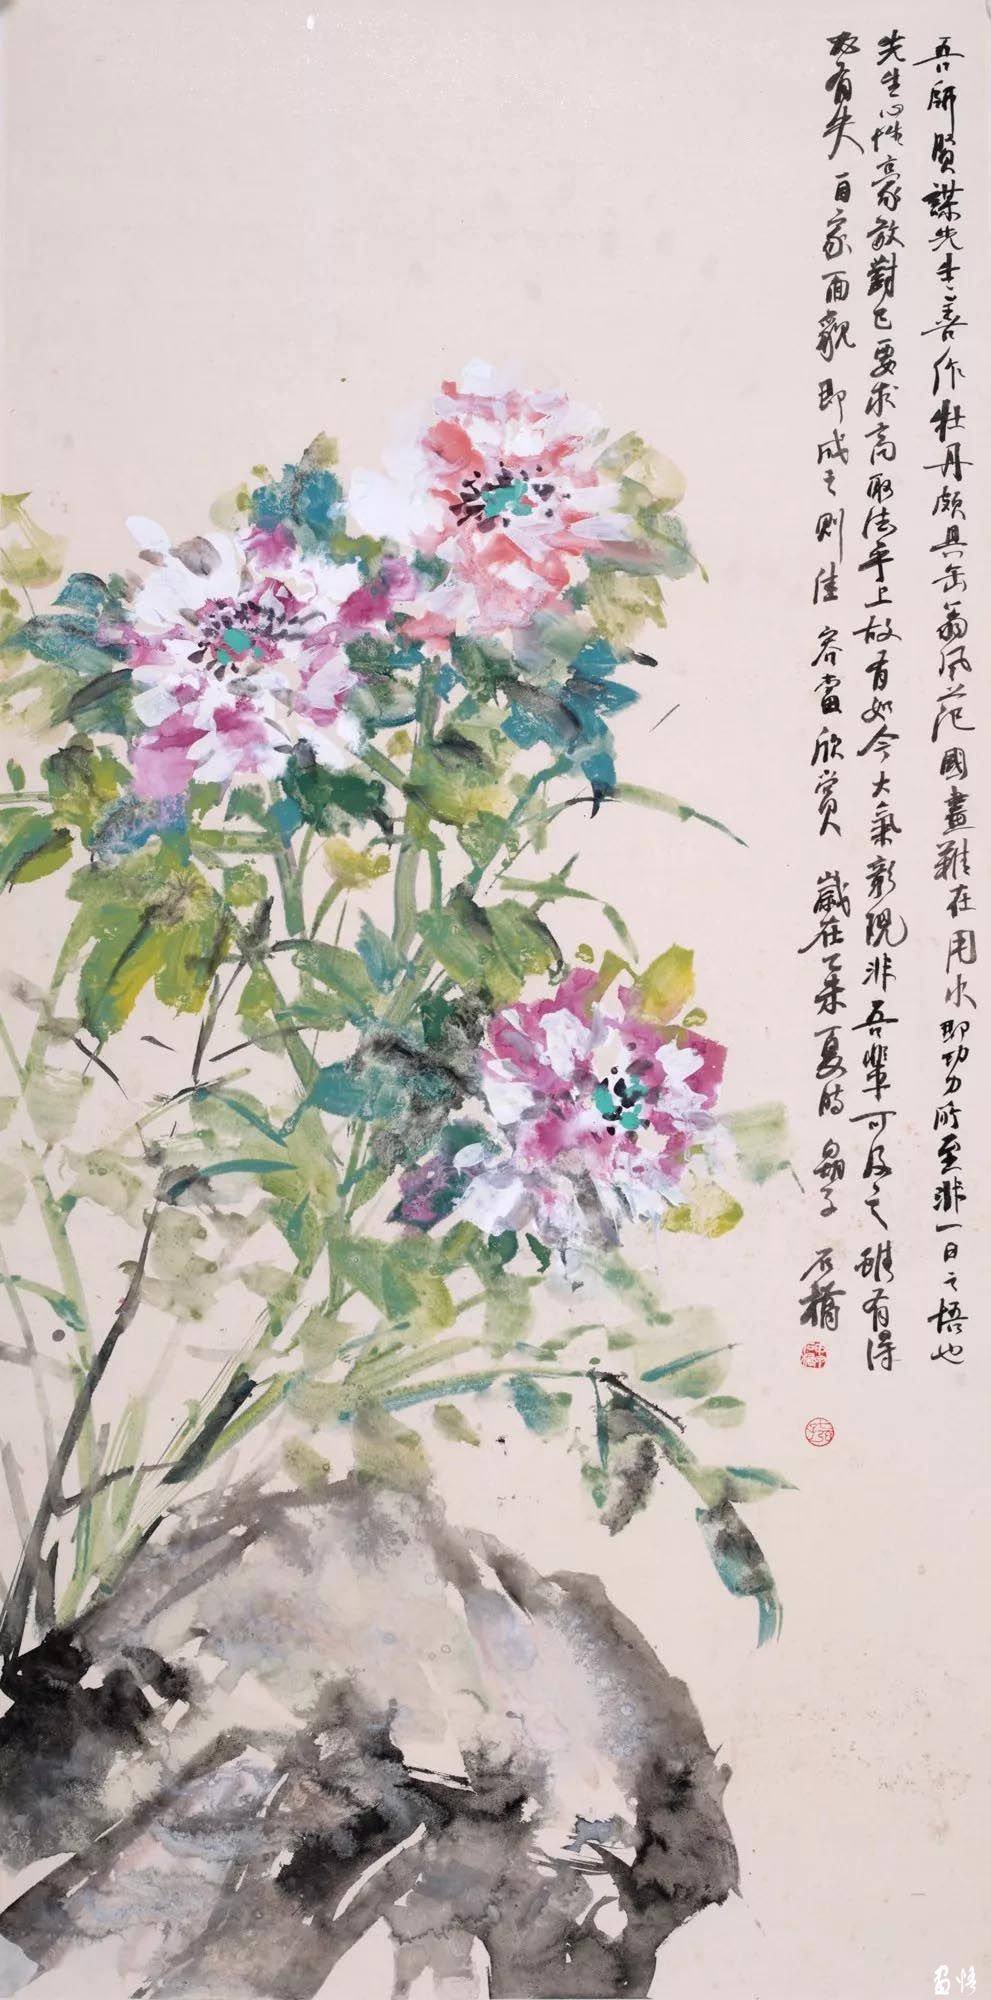 吾師賢謀先生善作牡丹頗具缶翁風范國畫難在用水即功力所至非一日之悟也
先生心性豪放對己要求高取法乎上故有如今大氣彰現非吾輩可及之雖有得
必有失自家面貌即成之則佳容當欣賞歲在乙未夏時 石橋